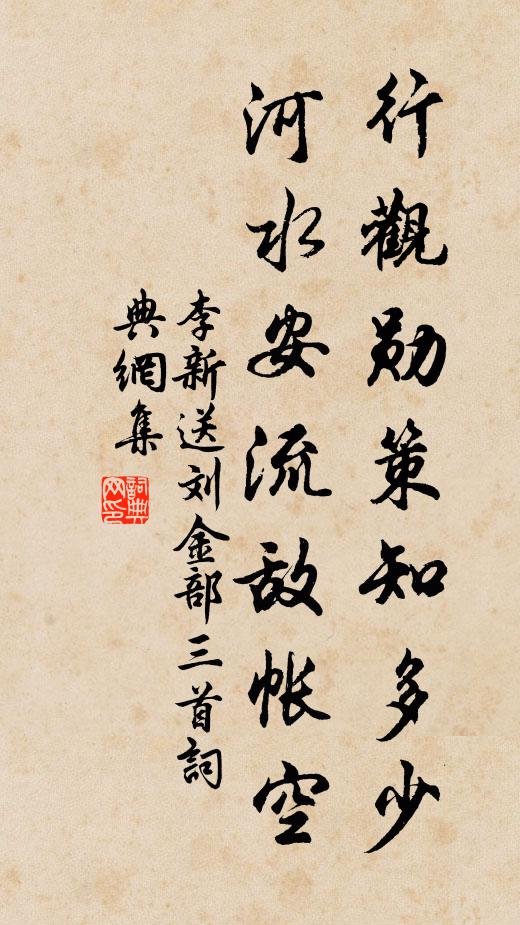 行觀勋策知多少
河水安流敌帐空
李新送刘金部三首詞
典網集
詞典网印